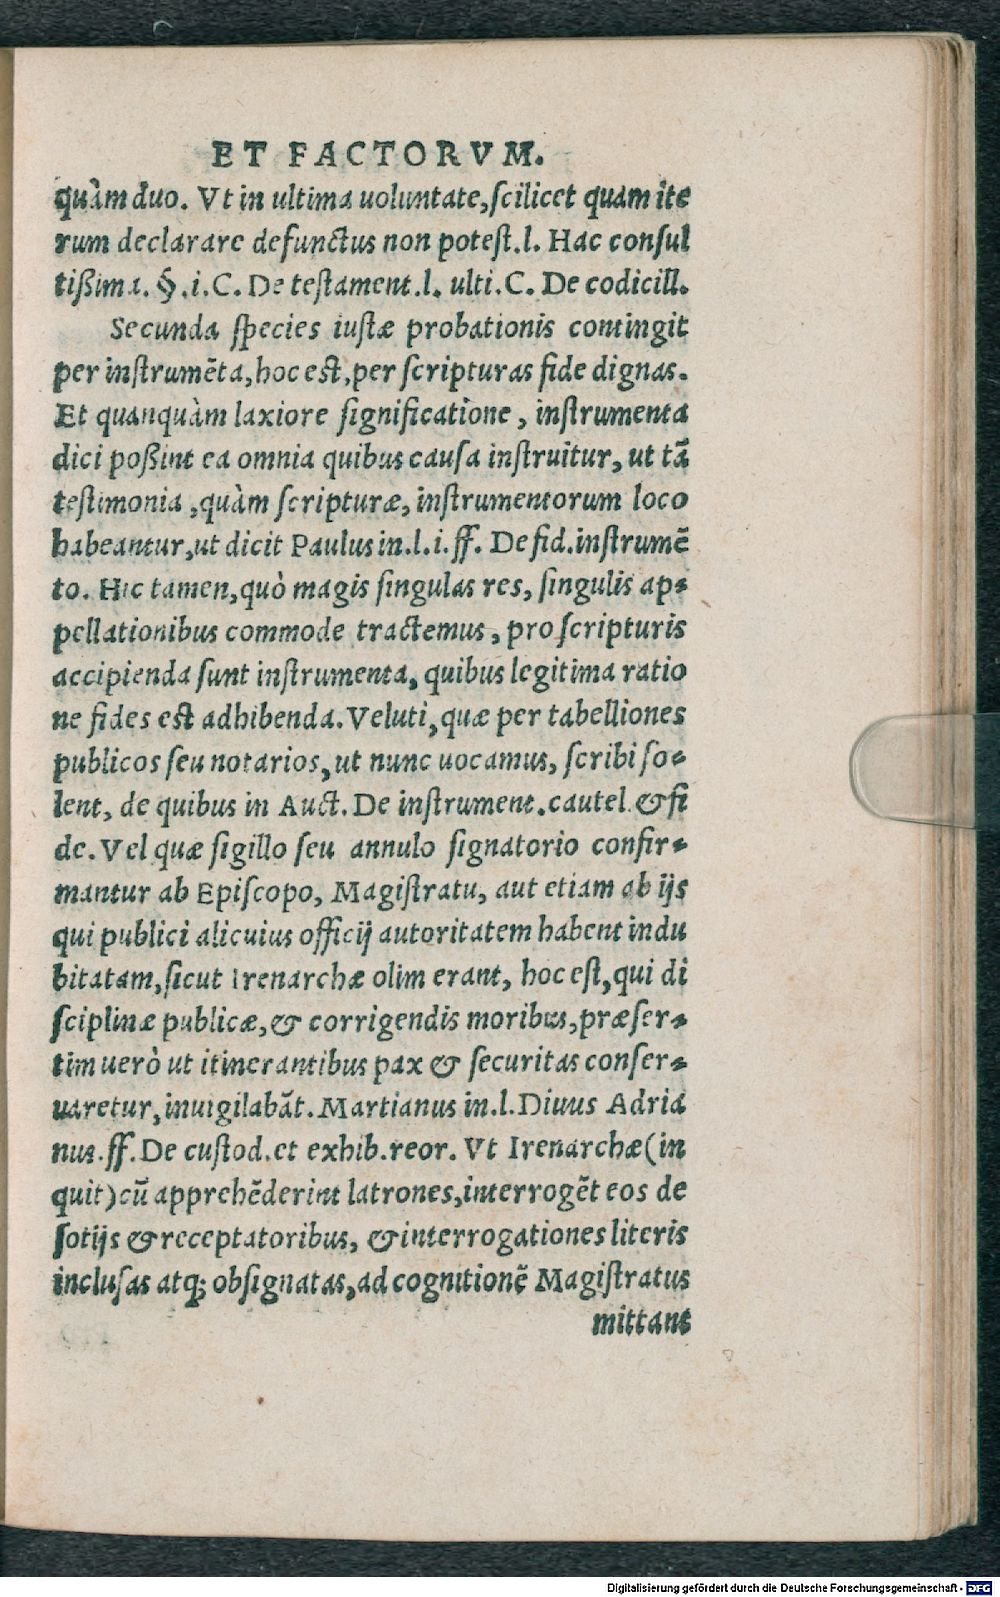 ET FACTORVM.
quàm duo. Vt in ultima uoluntate, scilicet quam ite
rum declarare defunctus non potest.l. Hac consul
tißima. §.i.C. De testament.l. ulti.C. De codicill.
Secunda species iustæ probationis contingit
per instrumēta, hoc est, per scripturas fide dignas.
Et quanquàm laxiore significatione, instrumenta
dici poßint ea omnia quibus causa instruitur, ut tā
testimonia, quàm scripturæ, instrumentorum loco
habeantur, ut dicit Paulus in.l.i.ff. De fid.instrumē
to. Hic tamen, quò magis singulas res, singulis ap-
pellationibus commode tractemus, pro scripturis
accipienda sunt instrumenta, quibus legitima ratio
ne fides est adhibenda. Veluti, quæ per tabelliones
publicos seu notarios, ut nunc uocamus, scribi so-
lent, de quibus in Auct. De instrument.cautel.& fi
de. Vel quæ sigillo seu annulo signatorio confir-
mantur ab Episcopo, Magistratu, aut etiam ab ijs
qui publici alicuius officij autoritatem habent indu
bitatam, sicut Irenarchæ olim erant, hoc est, qui di
sciplinæ publicæ, & corrigendis moribus, præser-
tim uerò ut itinerantibus pax & securitas conser-
uaretur, inuigilabāt. Martianus in.l. Diuus Adria
nus.ff. De custod.et exhib.reor. Vt Irenarchæ (in
quit) cū apprehēderint latrones, interrogēt eos de
sotijs & receptatoribus, & interrogationes literis
inclusas atq; obsignatas, ad cognitionē Magistratus
mittant
Digitalisierung gefördert durch die Deutsche Forschungsgemeinschaft - DFG